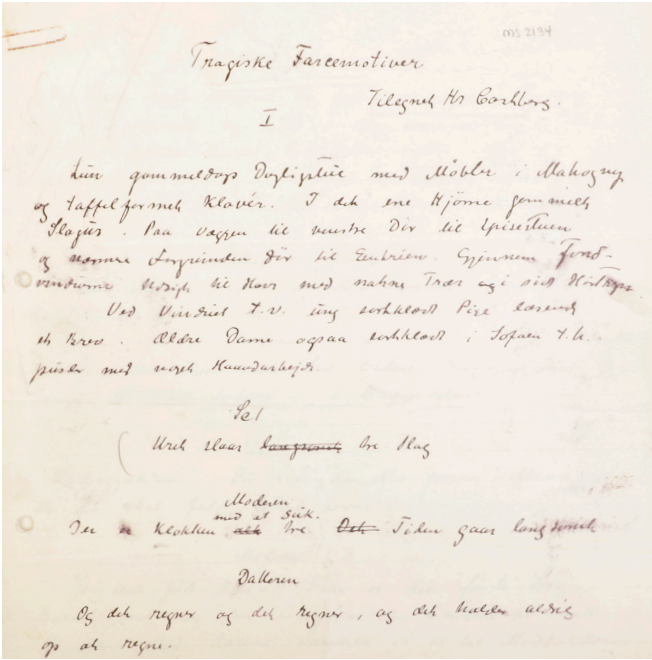 ms 2134
Tragiske Farcemotiver
Tilegnet Hr Cashberg.
I
Lun gammeldags Dagligstue med Møbler i Mahogny
og taffelformet Klavér. I det ene Hjørne gammelt
Slagur. Paa Væggen til venstre Dör til Spisestuen
og nærmere Forgrunden dör til Entréen. Gjennem Fond-
vinduerne Udsigt til Have med nakne Trær
Ved Vinduet t.v. ung sortklædt Pige læsende
et Brev. Ældre Dame ogsaa sortklædt i Sofaen t.h.
pusler med noget Haandarbejde
Uret slaar langsomt tre Slag
Moderen
med et Suk.
Der er Klokken alt tre Det Tiden gaar langsomt
Datteren
Og det regner og det regner, og det holder aldrig
op at regne.